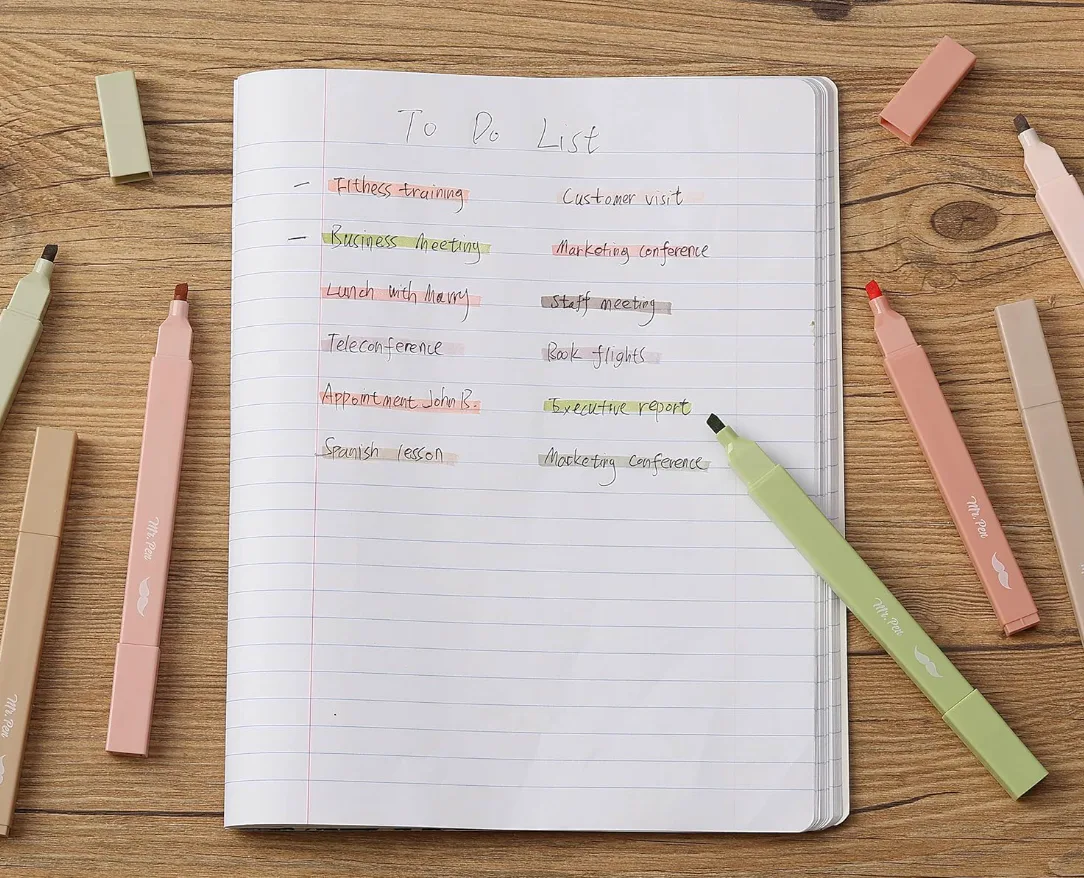 To Do List
- Fithess training
Customer visit
- Business meeting
Marketing conference
Lunch with Marry
Staff meeting
Teleconference
Book flights
Appointment John B.
Executive report
Spanish lesson
Marketing conference
Mr. Pen
Mr. Pen
Mr. Pen
Mr. Pen